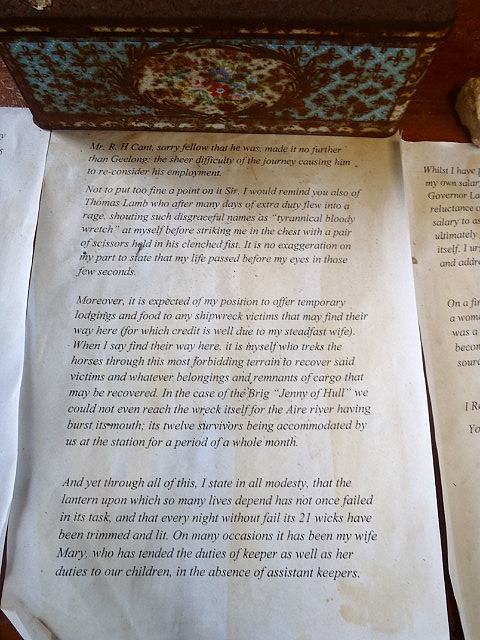 Mr. R. H Cant, sorry fellow that he was, made it no further
than Geelong: the sheer difficulty of the journey causing him
to re-consider his employment.
Not to put too fine a point on it Sir, I would remind you also of
Thomas Lamb who after many days of extra duty flew into a
rage, shouting such disgraceful names as "tyrannical bloody
wretch" at myself before striking me in the chest with a pair
of scissors held in his clenched fist. It is no exaggeration on
my part to state that my life passed before my eyes in those
few seconds.
Moreover, it is expected of my position to offer temporary
lodgings and food to any shipwreck victims that may find their
way here (for which credit is well due to my steadfast wife).
When I say find their way here, it is myself who treks the
horses through this most forbidding terrain to recover said
victims and whatever belongings and remnants of cargo that
may be recovered. In the case of the Brig "Jenny of Hull" we
could not even reach the wreck itself for the Aire river having
burst its mouth; its twelve survivors being accommodated by
us at the station for a period of a whole month.
And yet through all of this, I state in all modesty, that the
lantern upon which so many lives depend has not once failed
in its task, and that every night without fail its 21 wicks have
been trimmed and lit. On many occasions it has been my wife
Mary, who has tended the duties of keeper as well as her
duties to our children, in the absence of assistant keepers.
Whilst I have
my own salar
Governor La
reluctance o
salary to as
ultimately
itself. I ur
and addre
On a fir
a wom
was a
becom
sourc
I R
Yo